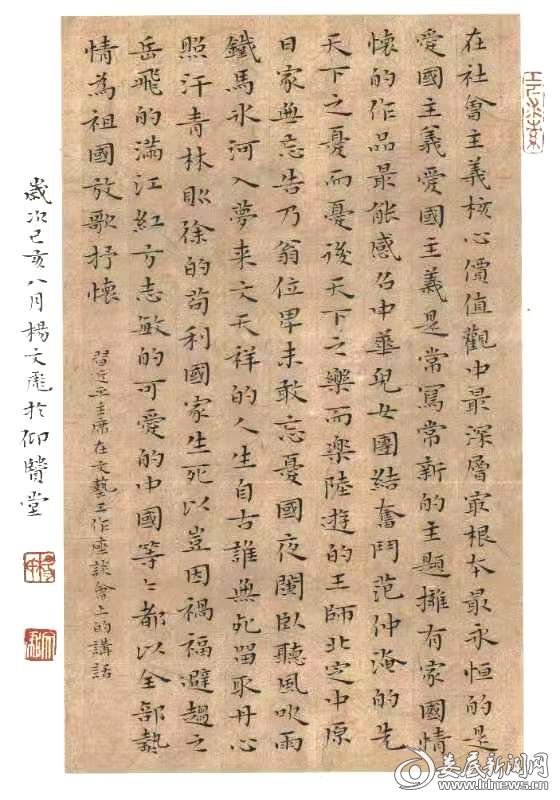 在社會主義核心價值觀中最深層最根本最永恒的是
愛國主義愛國主義是常寫常新的主題擁有家國情
懷的作品最能感召中華兒女團結奮鬥范仲淹的先
天下之憂而憂後天下之樂而樂陸遊的王師北定中原
日家無忘告乃翁位卑未敢忘憂國夜闌臥聽風吹雨
鐵馬冰河入夢来文天祥的人生自古誰無死留取丹心
照汗青林則徐的苟利國家生死以豈因禍福避趨之
岳飛的滿江紅方志敏的可愛的中國等〻都以全部熱
情為祖國放歌抒懷
習近平主席在文藝工作座談會上的講話
歲次己亥八月楊文彪於仰賢堂
娄底新闻网
www.ldnews.cn